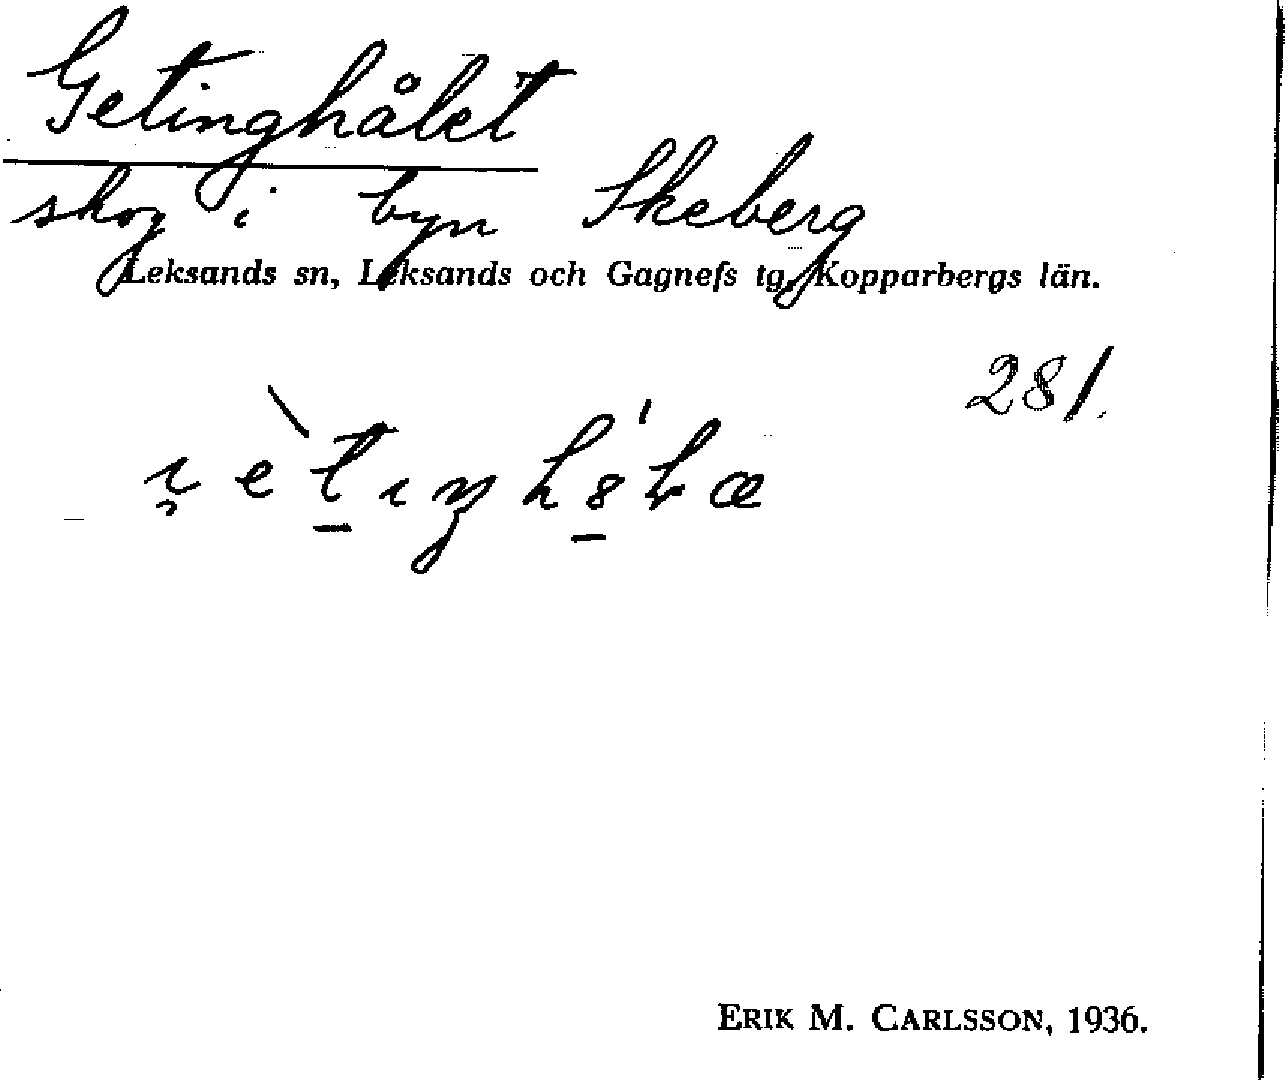 Getinghålet
skog i byn Skeberg
Leksands sn, Leksands och Gagnefs tg, Kopparbergs län.
281.
ERIK M. CARLSSON, 1936.